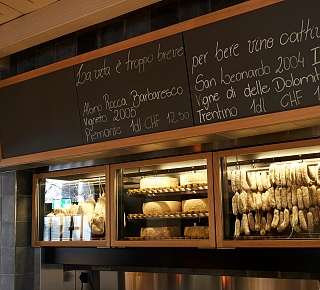 La vita è troppo breve per bere vino cattiv
Albino Rocca Barbaresco
Vigneto 2005
Piemonte 1dl CHF 12.50
San Leonardo 2004 I
Vigne di delle Dolomit
Trentino 1dl CHF